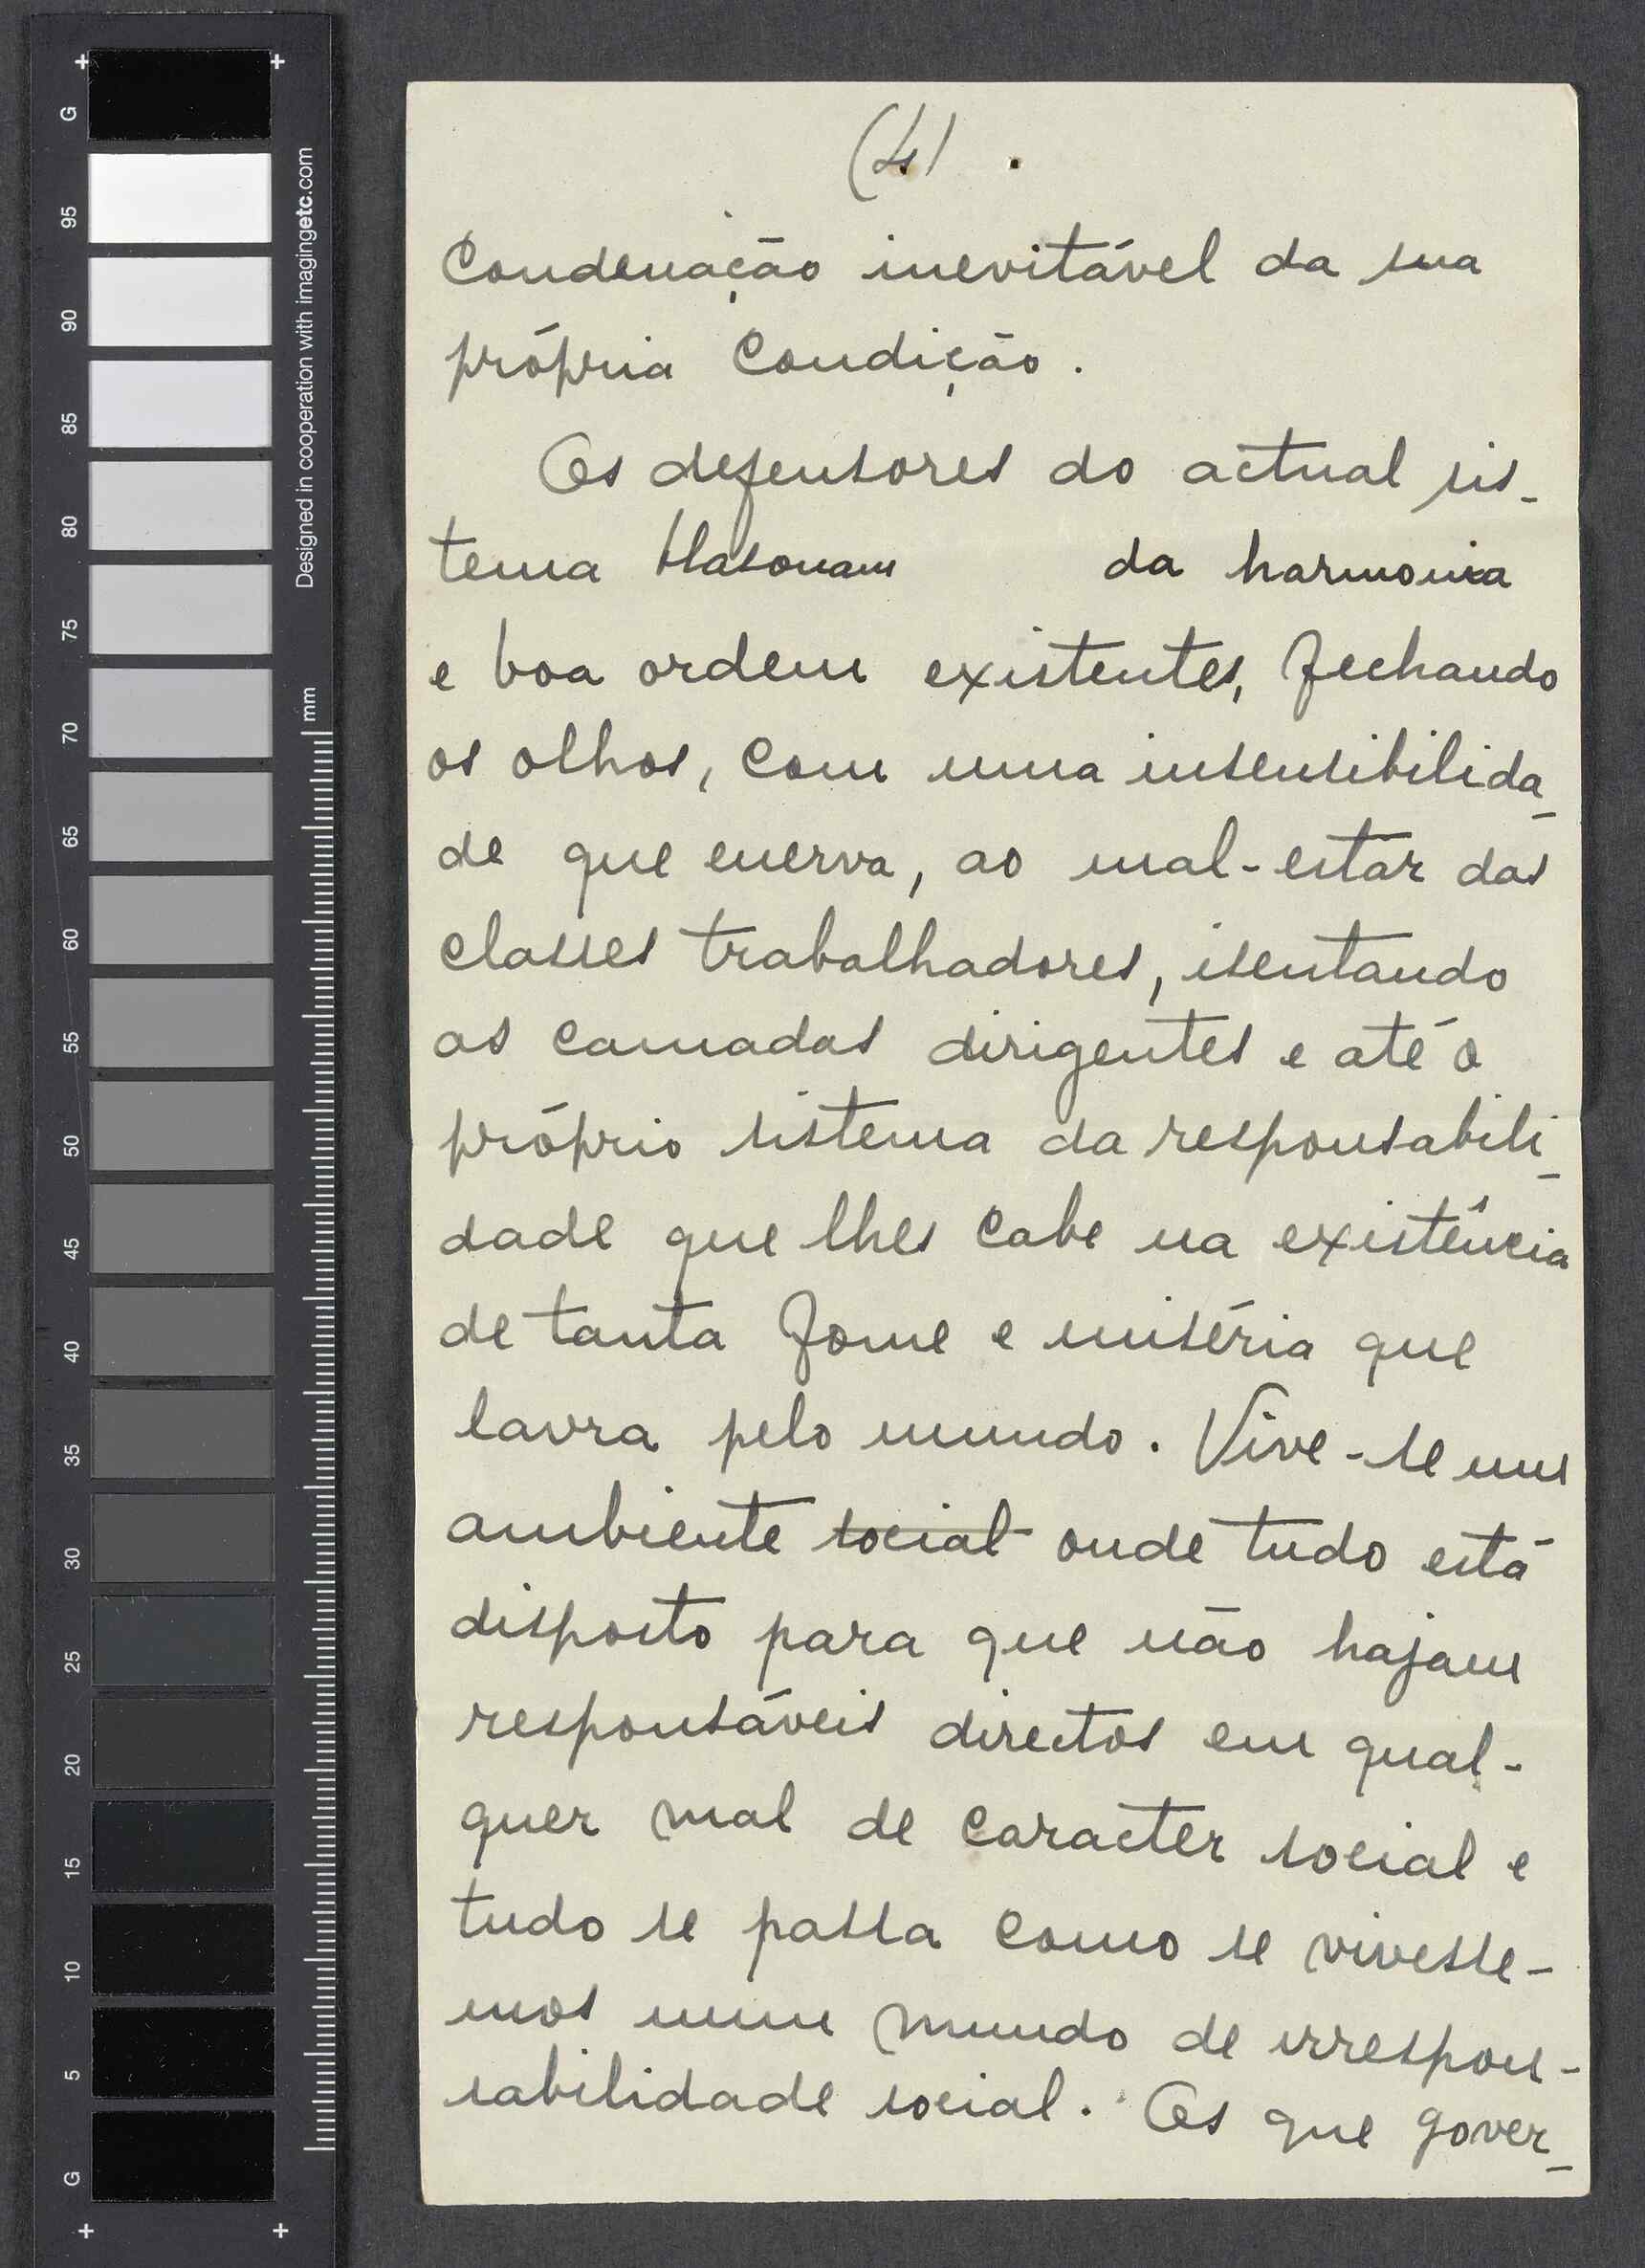 (4) .
Condenação inevitável da sua
própria Condição.
Os defensores do actual sis-
tema blasonam da harmonia
e boa ordem existentes, fechando
os olhos, com uma insensibilida-
de que enerva, ao mal-estar das
classes trabalhadores, isentando
as camadas dirigentes e até o
próprio sistema da responsabili-
dade que lhes cabe na existência
de tanta fome e miséria que
lavra pelo mundo. Vive-se num
ambiente social onde tudo está
disposto para que não hajam
responsáveis directos em qual-
quer mal de caracter social e
tudo se passa como se vivesse-
mos num mundo de irrespon-
sabilidade social. Os que gover-
G
95
90
85
80
75
70
65
60
55
50
45
40
35
30
25
20
15
10
5
G
Designed in cooperation with imagingetc.com
mm